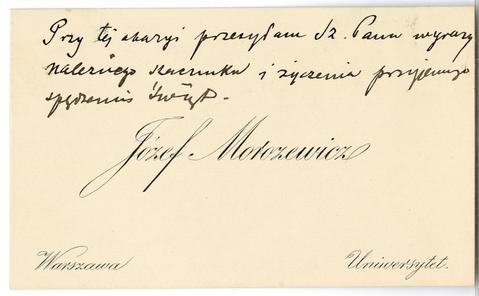 Przy tej okazyi przesyłam Sz. Panu wyrazy
należnego szacunku i życzenia przyjemnego
spędzenia Świąt.
Józef Morozewicz
Warszawa
Uniwersytet.